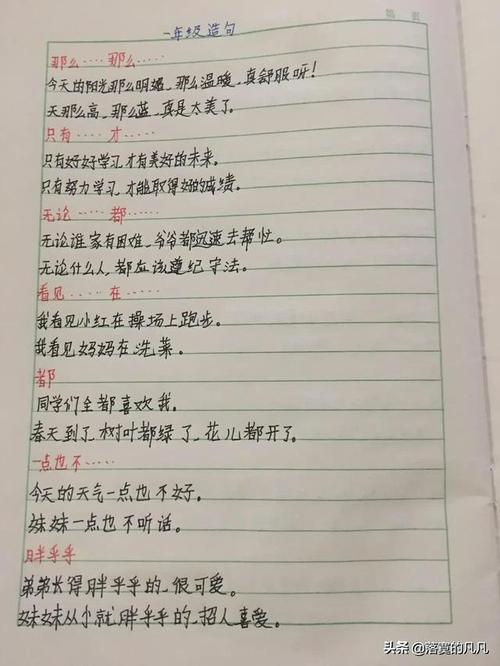 第 页
一年级造句
那么····那么····
今天的阳光那么明媚,那么温暖,真舒服呀!
天那么高,那么蓝,真是太美了。
只有····才
只有好好学习,才有美好的未来。
只有努力学习,才能取得好的成绩。
无论····都
无论谁家有困难,爷爷都迅速去帮忙。
无论什么人,都应该遵纪守法。
看见····在····
我看见小红在操场上跑步。
我看见妈妈在洗菜。
都
同学们全都喜欢我。
春天到了,树叶都绿了,花儿都开了。
一点也不····
今天的天气一点也不好。
妹妹一点也不听话。
胖乎乎
弟弟长得胖乎乎的,很可爱。
妹妹从小就胖乎乎的,招人喜爱。
头条 @落寞的凡凡